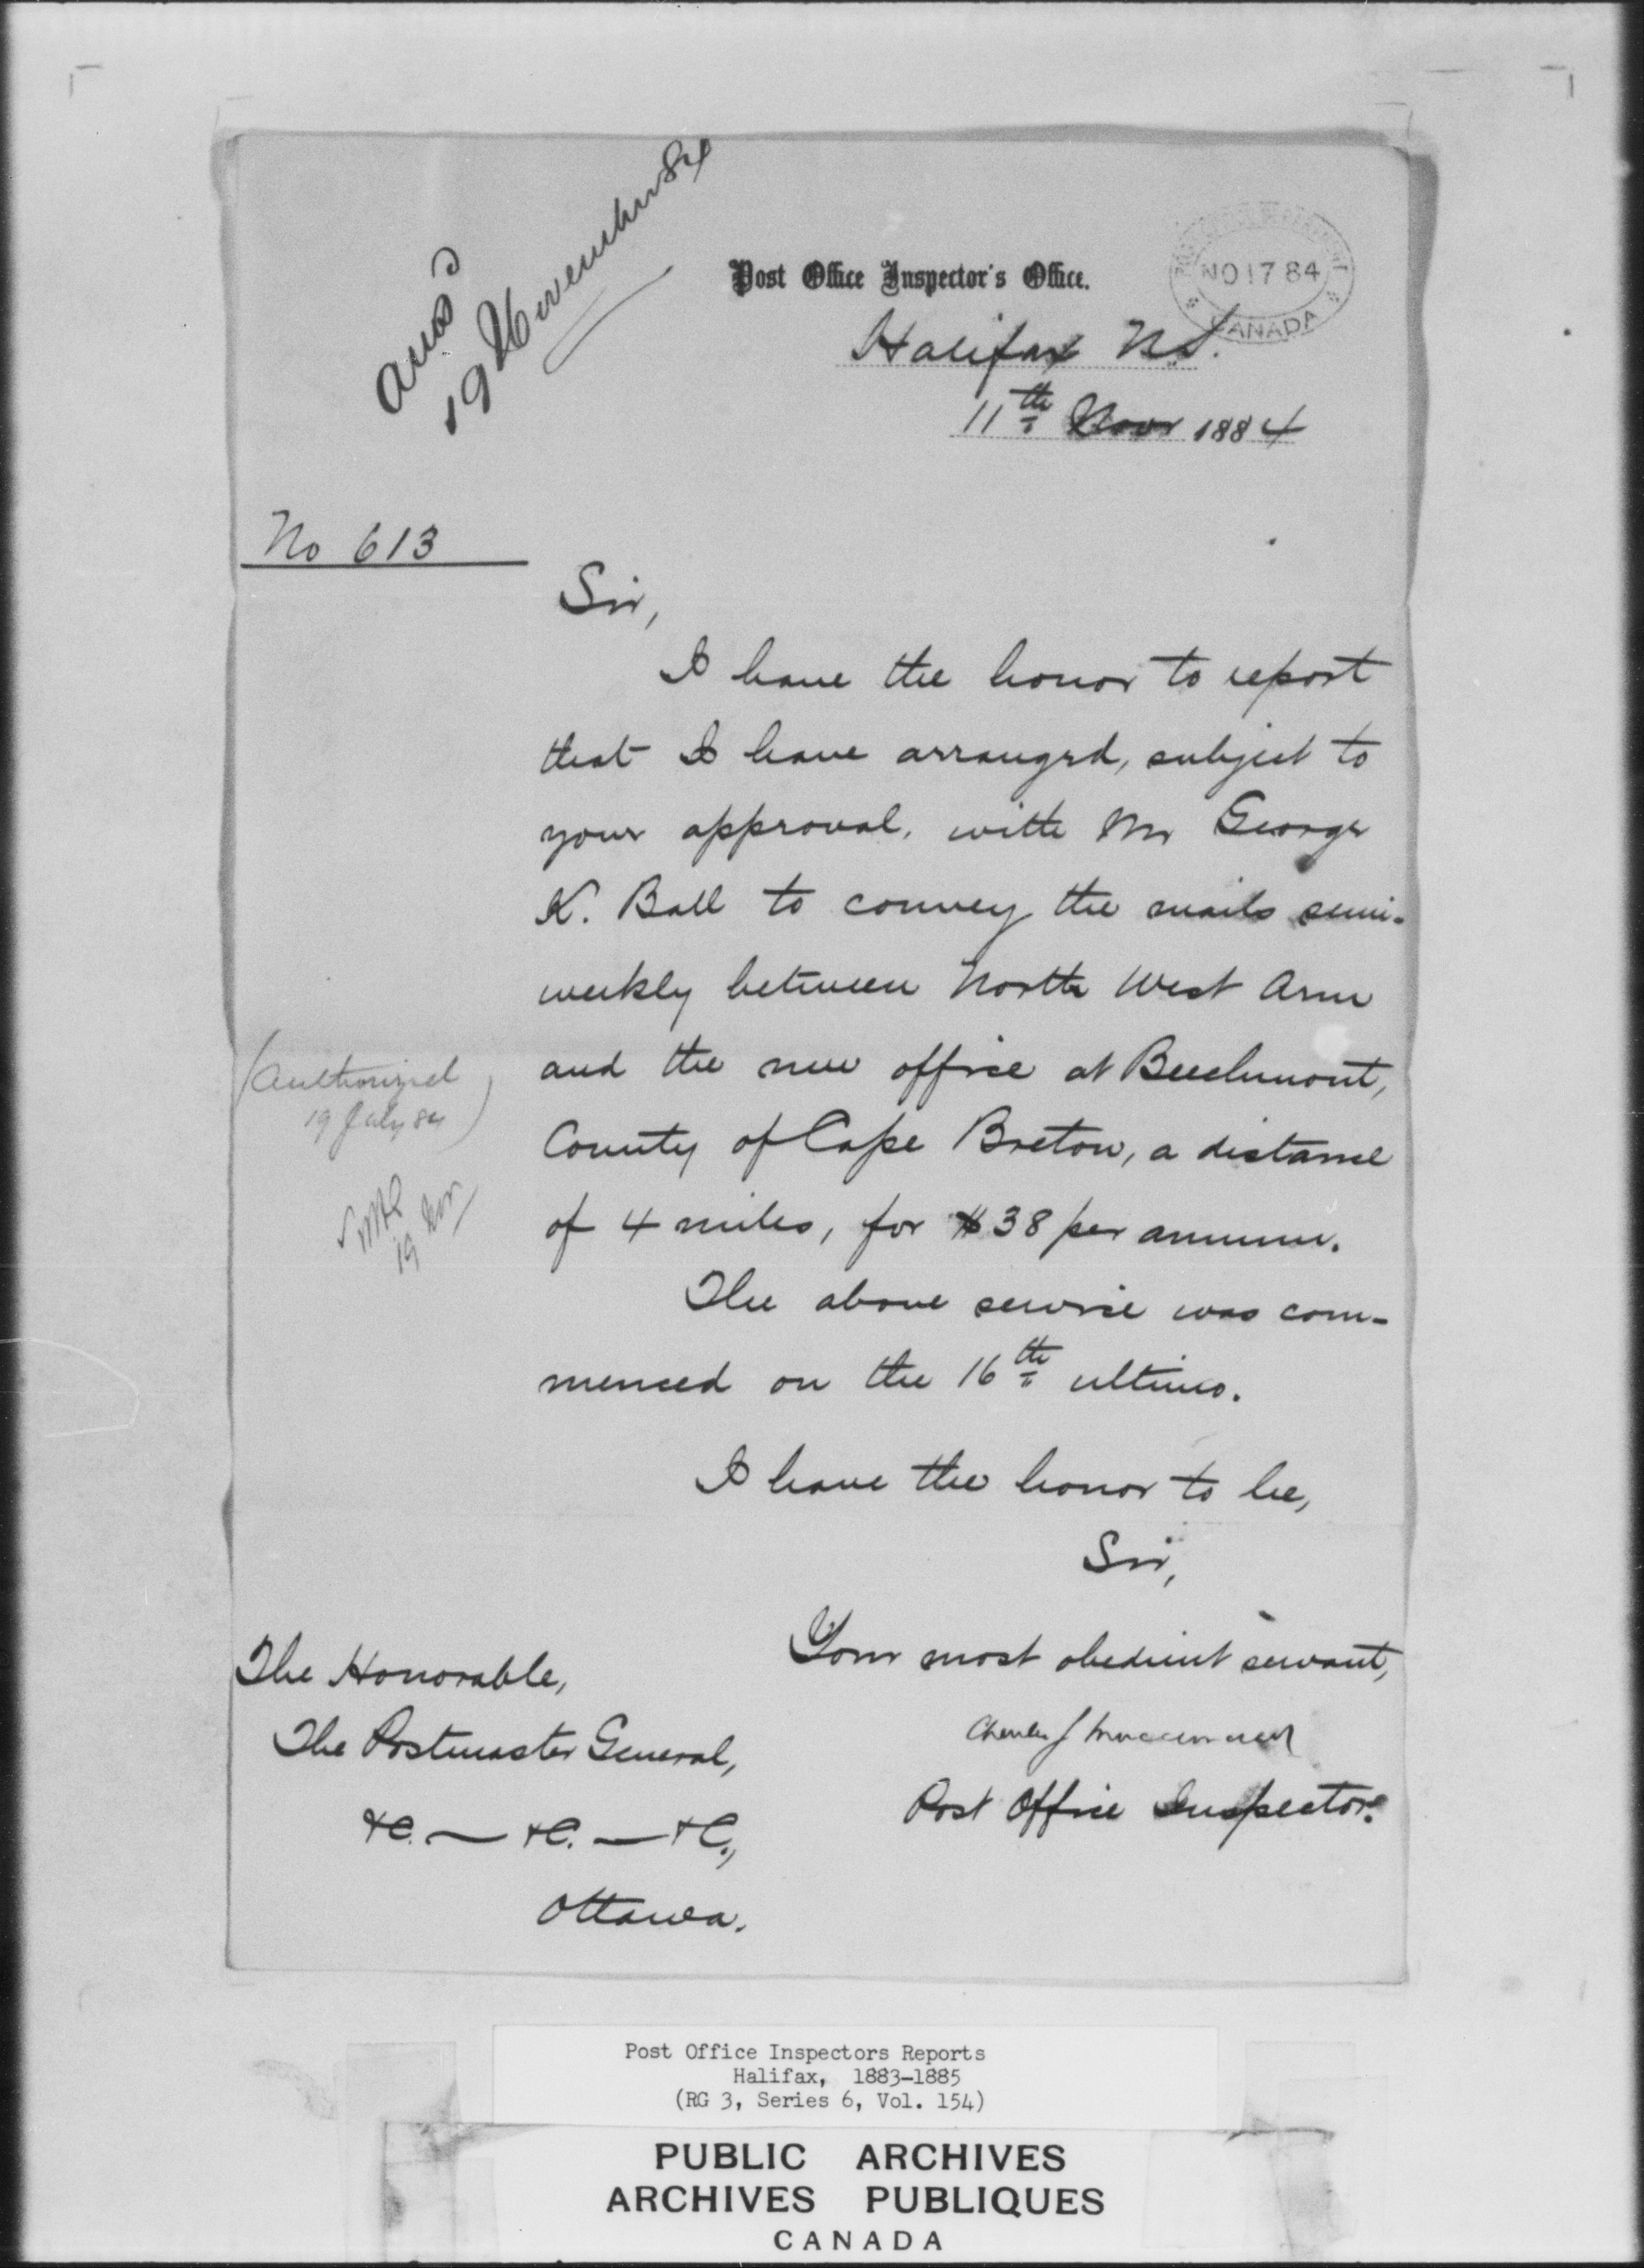 ansd
19 November 84
Post Office Inspector's Office.
NO 17 84
CANADA
Halifax N.S.
11th Novr 1884
No 613
Sir,
I have the honor to report
that I have arranged, subject to
your approval, with Mr George
K. Ball to convey the mails semi-
weekly between North West Arm
and the new office at Beechmont,
(Authorized
19 July 84)
County of Cape Breton, a distance
of 4 miles, for $38 per annum.
19 Nov
The above service was com-
menced on the 16th ultimo.
I have the honor to be,
Sir,
Your most obedient servant,
The Honorable,
The Postmaster General,
&c. — &c. — &c.,
Ottawa.
Charles J Macdonald
Post Office Inspector.
Post Office Inspectors Reports
Halifax, 1883-1885
(RG 3, Series 6, Vol. 154)
PUBLIC ARCHIVES
ARCHIVES PUBLIQUES
CANADA